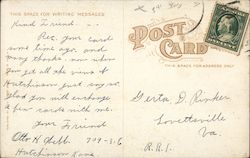 THIS SPACE FOR WRITING MESSAGES
Kind Friend:
Rec. your card
some time ago, and
many thanks. now when
you get all the views of
Hutchinson just say so
and you will exchange a
few cards with me.
your Friend
Otto H.
Hutchinson Kans.
POST CARD
THIS SPACE FOR ADDRESS ONLY
Gerta D.
Lovettsville
Va.
R.R.1.